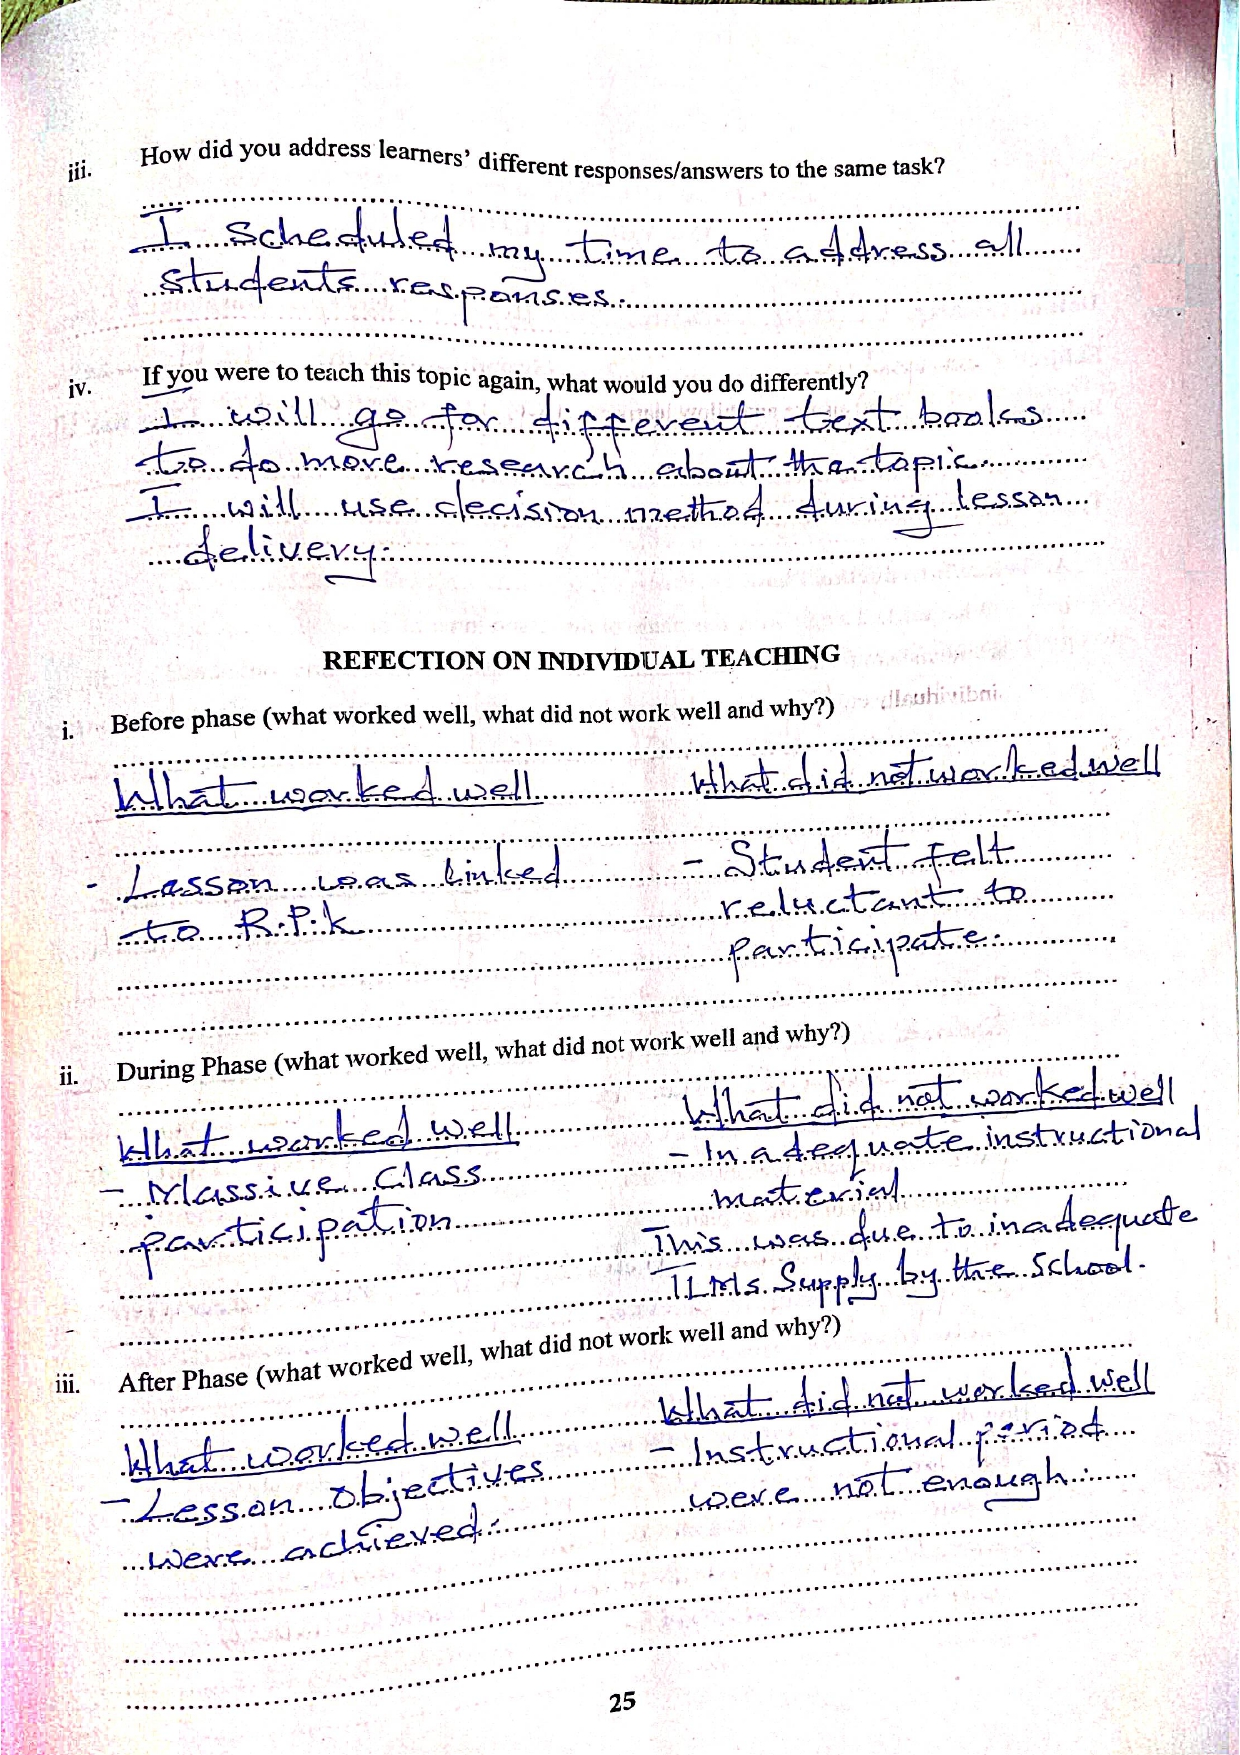 iii. How did you address learners' different responses/answers to the same task?
I scheduled my time to address all
students responses.
iv. If you were to teach this topic again, what would you do differently?
I will go for different text books
to do more research about the topic.
I will use decision method during lesson
delivery.
REFECTION ON INDIVIDUAL TEACHING
i. Before phase (what worked well, what did not work well and why?)
What worked well What did not worked well
- Lesson was linked - Student felt
to R.P.k reluctant to
participate.
ii. During Phase (what worked well, what did not work well and why?)
What worked well What did not worked well
- Massive Class - Inadequate instructional
participation material
This was due to inadequate
TLMs Supply by the School.
iii. After Phase (what worked well, what did not work well and why?)
What worked well What did not worked well
- Lesson objectives - Instructional period
were achieved. were not enough.
25